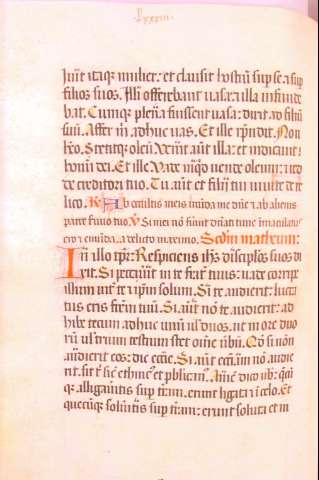 lxxxiii.
Iuit itaqȝ mulier: et clausit hostiū sup se ⁊ sup
filios suos. Illi offerebant uasa: ⁊ illa infunde
bat. Cumqȝ plena fuissent uasa: dixit ad filiū
suū. Affer m̄ adhuc uas. Et ille rn̄dit. Non
hēo. Stetitqȝ oleū. Uenit aūt illa: et indicauit
homī dei. Et ille. Uade inq̄d uende oleum: ⁊ red
de creditori tuo. Tu aūt et filij tui uiuite de re
liquo. Ab occultis meis mūda me dn̄e: ⁊ ab alienis
parce seruo tuo. Si mei nō fūint dn̄ati tunc īmaculatꝰ
ero: et emūdabor a delicto maximo. Scdm matheum:
In illo tp̄r: Respiciens ih̄s discipulos suos di
xit. Si peccauit in te frater tuus: uade corripe
illum int̄ te ⁊ ip̄m solum. Si te audierit: lucra
tus eris frēm tuū. Si aūt nō te audierit: ad
hibe tecum adhuc unū ul' duos. ut in ore duo
rū ul' trium testium stet omē ūbū. Qd̄ si nōn
audierit eos: dic ecclīe. Si aūt ecclīam nō audie
rit. sit t̄ sic̄ ethnicꝰ et publicanꝰ. Amē dico uob̄: q̄cū
qȝ alligaūitis sup t̄ram: erunt ligata ⁊ ī celo. Et
quecūqȝ solūitis sup t̄ram: erunt soluta et in